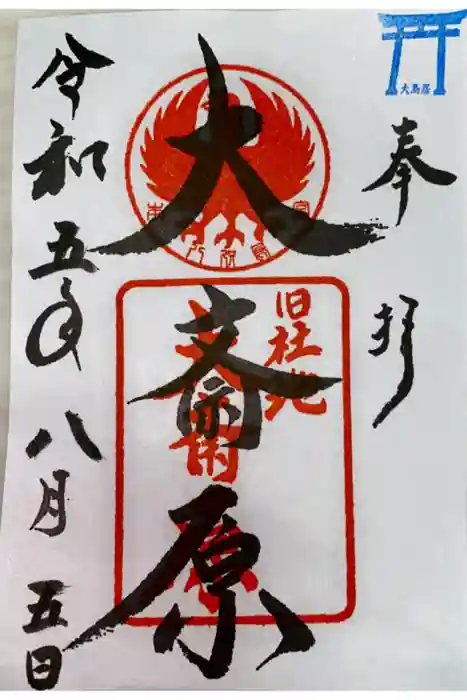 大鳥居
奉拝
大斎原
旧社地
令和五年八月五日